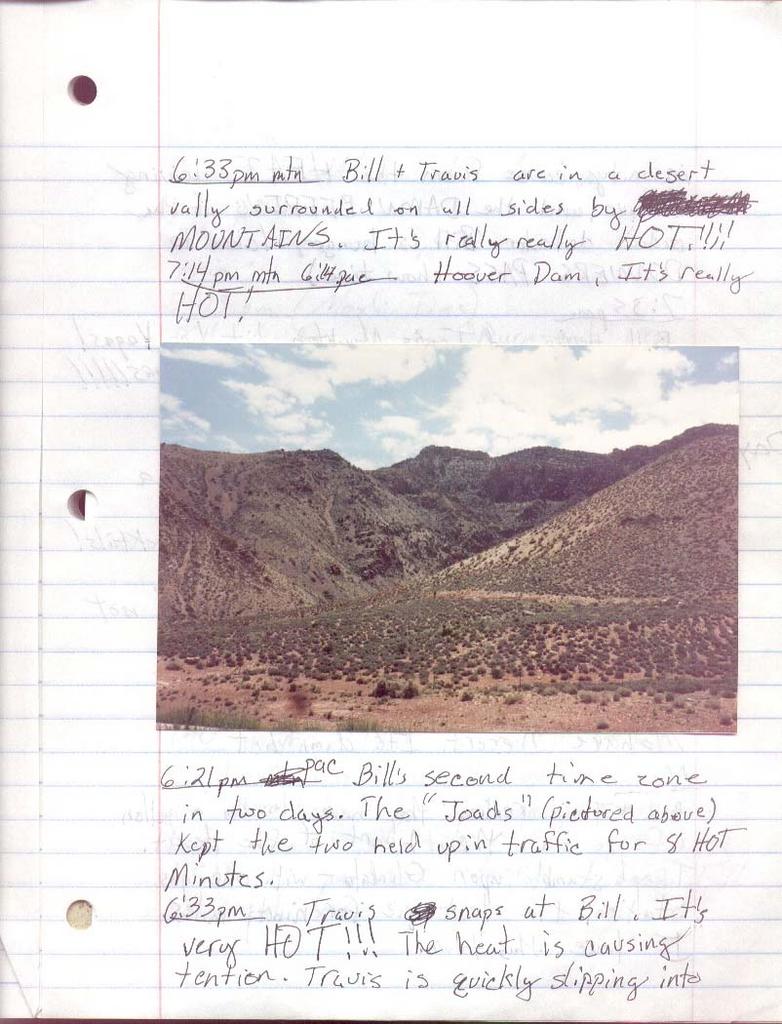 6:33pm mtn Bill + Travis are in a desert
vally surrounded on all sides by
MOUNTAINS. It's really really HOT!!!!
7:14pm mtn 6:14pac Hoover Dam, It's really
HOT!
6:21pm pac Bill's second time zone
in two days. The "Joads" (pictured above)
kept the two held up in traffic for 8 HOT
Minutes.
6:33pm Travis snaps at Bill. It's
very HOT!!! The heat is causing
tention. Travis is quickly slipping into